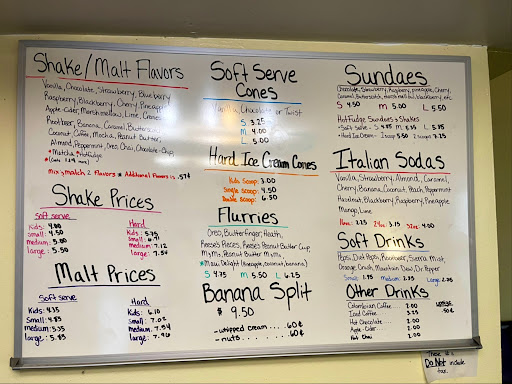 Shake/Malt Flavors
Vanilla, Chocolate, Strawberry, Blueberry
Raspberry, Blackberry, Cherry, Pineapple
Apple-Cider, Marshmallow, Lime, Cremes
Rootbeer, Banana, Caramel, Butterscotch
Coconut, Coffee, Mocha, Peanut Butter,
Almond, Peppermint, Oreo, Chai, Chocolate-Chip,
*Matcha *Hotfudge
mix & match 2 Flavors * Additional Flavors is .57¢
Shake Prices
Soft serve Hard
Kids: 4.00 Kids: 5.75
small: 4.50
medium: 5.00 medium: 7.12
large: 5.50 large: 7.54
Malt Prices
Soft serve Hard
Kids: 4.35 Kids: 6.10
Small: 4.85 Small: 7.02
medium: 5.35 medium: 7.54
large: 5.85 large: 7.96
Soft Serve
Cones
Vanilla, Chocolate or Twist
S 3.25
M 4.00
L 5.00
Hard Ice Cream Cones
Kids Scoop: 3.00
Single Scoop: 4.50
Double Scoop: 6.50
Flurries
Oreo, Butterfinger, Heath,
Reese's Pieces, Reese's Peanut Butter Cup
M+Ms, Peanut Butter M+Ms
*Maui Delight (pineapple, coconut, banana)
S 4.75 M 5.50 L 6.25
Banana Split
$ 9.50
-whipped cream.... 60¢
-nuts........ 60¢
Sundaes
Chocolate, Strawberry, Raspberry, pineapple, Cherry,
Caramel, Butterscotch, marshmallow, blackberry, etc.
S 4.50 M 5.00 L 5.50
Hot Fudge Sundaes & Shakes
-Soft Serve - S 4.85 M 5.35 L 5.85
-Hard Ice Cream - 1 scoop 5.50 2 scoop 7.25
Italian Sodas
Vanilla, Strawberry, Almond, Caramel,
Cherry, Banana, Coconut, Peach, Peppermint
Hazelnut, Blackberry, Raspberry, Pineapple
Mango, Lime
Soft Drinks
Pepsi, Diet Pepsi, Rootbeer, Sierra Mist,
Orange Crush, Mountain Dew, Dr. Pepper
Other Drinks
Colombian Coffee .... 2.00
Iced Coffee ..... 3.25 .50¢
Hot Chocolate .... 2.00
Apple-Cider.... 2.00
Hot Chai 2.00
Do Not include
tax.